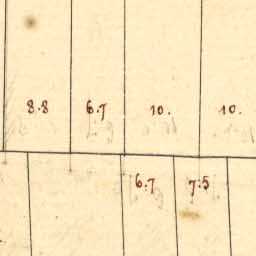 8.8 6.7 10. 10.
6.7 7.5